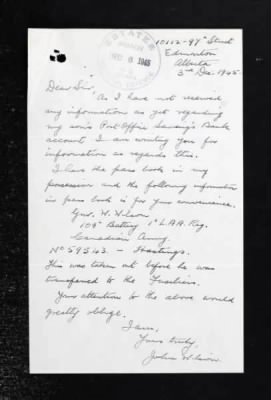 ESTATES
DEC 8 1945
10112-97 Street
Edmonton
Alberta
3rd Dec. 1945
Dear Sir,
As I have not received
any information as yet regarding
my son's Post Office Saving's Bank
account I am writing you for
information as regards this.
I have the pass book in my
possession and the following information
in pass book is for your convenience.
H. Wilson
109th Battery 1st L.A.A. Reg.
Canadian Army
No 59543 - Hastings.
This was taken out before he was
transferred to the Fusiliers.
Your attention to the above would
greatly oblige.
I am,
Yours truly,
John Wilson